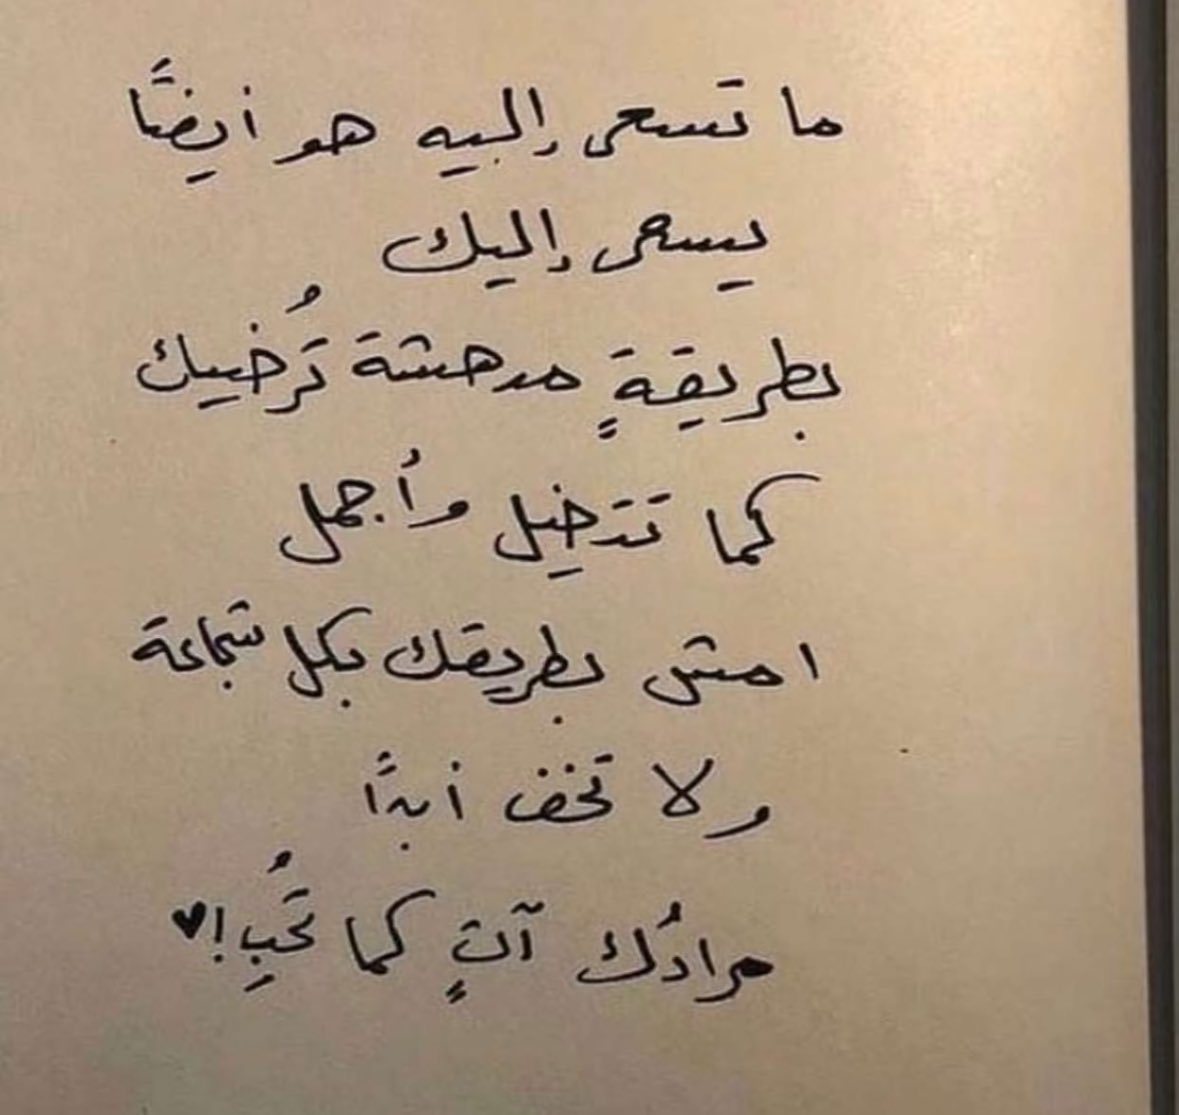 ما تسعى إليه هو أيضًا
يسعى إليك
بطريقةٍ مدهشة تُرضيك
كما تتخيل وأجمل
امشي بطريقك بكل شجاعة
ولا تخف أبدًا
مرادُك آتٍ كما تُحبِ!♥